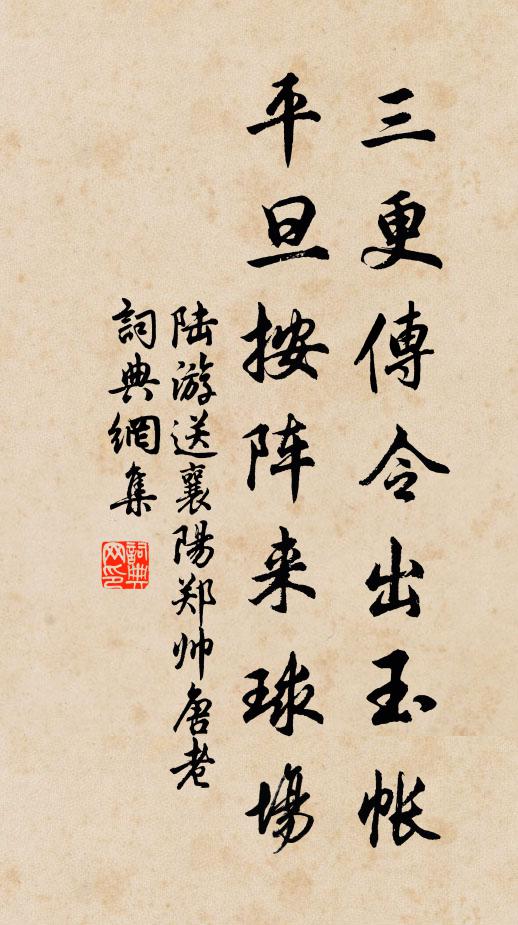 三更傳令出玉帐
平旦按阵来球場
陆游送襄陽郑帅唐老
詞典網集
詞典
网印